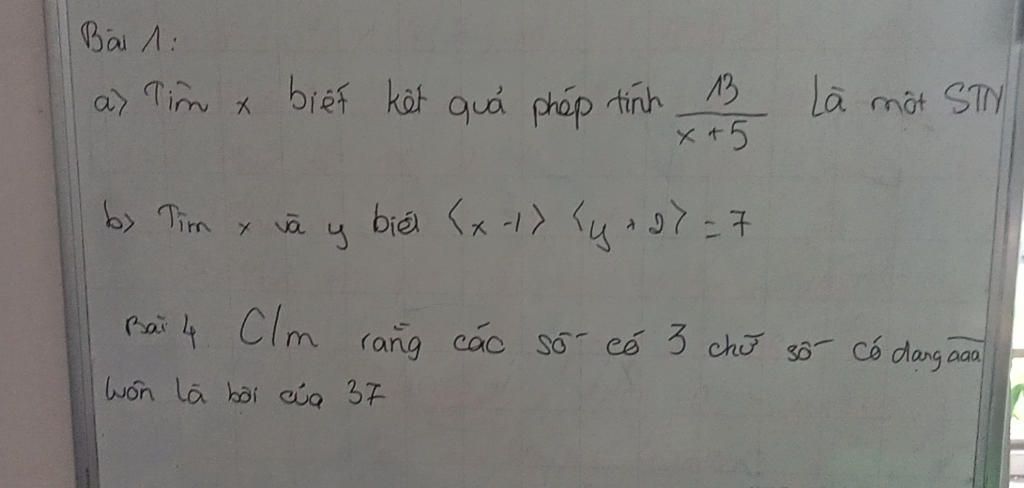 Bài 1:
a) Tìm x biết kết quả phép tính 13/(x+5) Là một STN
b) Tìm x và y biết (x-1) (y+2) = 7
Bài 4 C/m rằng các số có 3 chữ số có dạng aaa
luôn là bội của 37